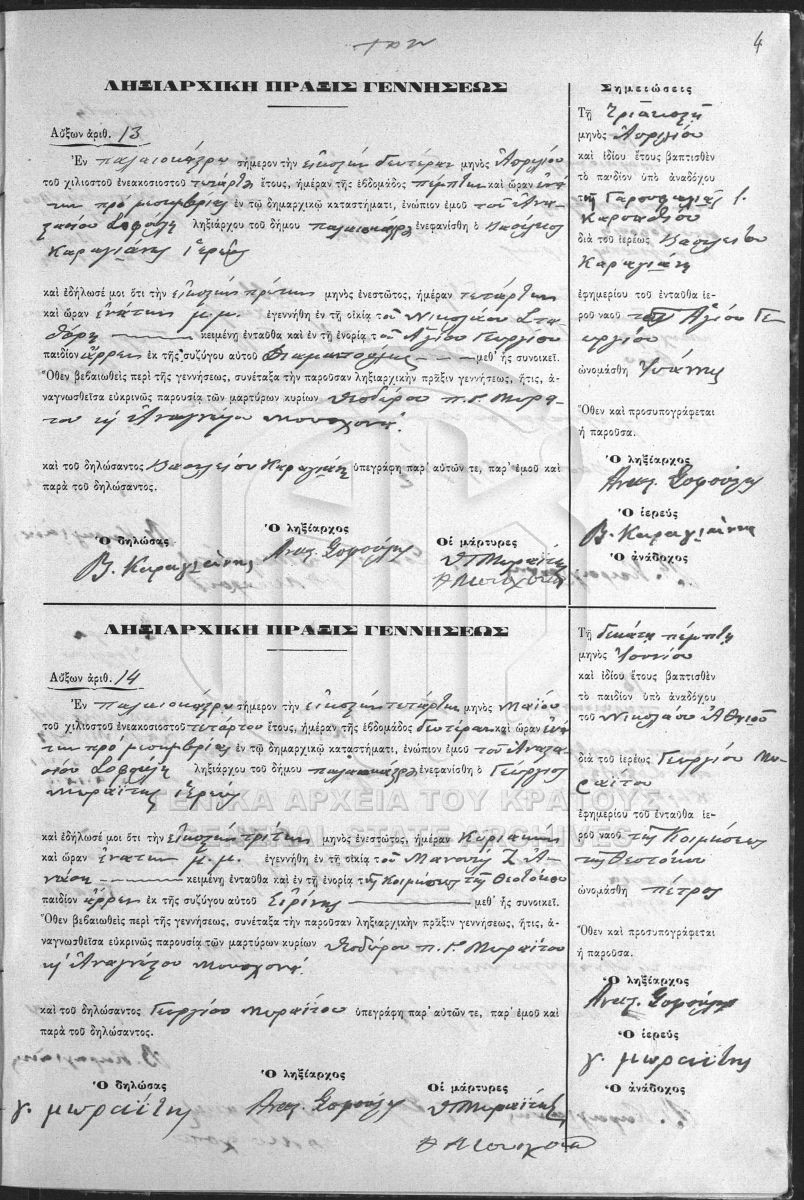 4
ΛΗΞΙΑΡΧΙΚΗ ΠΡΑΞΙΣ ΓΕΝΝΗΣΕΩΣ
Αὔξων ἀριθ. 13
Ἐν παλαιοκάστρῳ σήμερον τὴν εἰκοστὴν δευτέραν μηνὸς Ἀπριλίου
τοῦ χιλιοστοῦ ἐνεακοσιοστοῦ τετάρτου ἔτους, ἡμέραν τῆς ἑβδομάδος πέμπτην καὶ ὥραν ἐνά
την πρὸ μεσημβρίας ἐν τῷ δημαρχικῷ καταστήματι, ἐνώπιον ἐμοῦ τοῦ Ἀνα
στασίου Σοφούλη ληξιάρχου τοῦ δήμου παλαιοκάστρου ἐνεφανίσθη ὁ Βασίλειος
Καραγιάνης ἱερεὺς
καὶ ἐδήλωσέ μοι ὅτι τὴν εἰκοστὴν πρώτην μηνὸς ἐνεστῶτος, ἡμέραν τετάρτην
καὶ ὥραν ἐνάτην μ.μ. ἐγεννήθη ἐν τῇ οἰκίᾳ τοῦ Νικολάου Στα
κειμένῃ ἐνταῦθα καὶ ἐν τῇ ἐνορίᾳ τοῦ Ἁγίου Γεωργίου
παιδίον ἄρρεν ἐκ τῆς συζύγου αὐτοῦ μεθ' ἧς συνοικεῖ.
Ὅθεν βεβαιωθεὶς περὶ τῆς γεννήσεως, συνέταξα τὴν παροῦσαν ληξιαρχικὴν πρᾶξιν γεννήσεως, ἥτις, ἀ-
ναγνωσθεῖσα εὐκρινῶς παρουσίᾳ τῶν μαρτύρων κυρίων Θεοδώρου π. Γ. Μωραΐ
του κ Ἀναγνώστου
καὶ τοῦ δηλώσαντος Βασιλείου Καραγιάνη ὑπεγράφη παρ' αὐτῶν τε, παρ' ἐμοῦ καὶ
παρὰ τοῦ δηλώσαντος.
Ὁ δηλώσας Ὁ ληξίαρχος Οἱ μάρτυρες
Β. Καραγιάνης Αναστ. Σοφούλης Θ Μωραΐτης
Σημειώσεις
Τῇ τριακοστῇ
μηνὸς Ἀπριλίου
καὶ ἰδίου ἔτους βαπτισθὲν
τὸ παιδίον ὑπὸ ἀναδόχου
διὰ τοῦ ἱερέως Βασιλείου
Καραγιάνη
ἐφημερίου τοῦ ἐνταῦθα ἱε-
ροῦ ναοῦ τοῦ Ἁγίου Γε
ωργίου
ὠνομάσθη Ἰωάννης
Ὅθεν καὶ προσυπογράφεται
ἡ παροῦσα.
Ὁ ληξίαρχος
Αναστ. Σοφούλης
Ὁ ἱερεὺς
Β. Καραγιάννης
Ὁ ἀνάδοχος
ΛΗΞΙΑΡΧΙΚΗ ΠΡΑΞΙΣ ΓΕΝΝΗΣΕΩΣ
Αὔξων ἀριθ. 14
Ἐν παλαιοκάστρῳ σήμερον τὴν εἰκοστὴν τετάρτην μηνὸς Μαΐου
τοῦ χιλιοστοῦ ἐνεακοσιοστοῦ τετάρτου ἔτους, ἡμέραν τῆς ἑβδομάδος δευτέραν καὶ ὥραν ἐνά
την πρὸ μεσημβρίας ἐν τῷ δημαρχικῷ καταστήματι, ἐνώπιον ἐμοῦ τοῦ Ἀναστα
σίου Σοφούλη ληξιάρχου τοῦ δήμου παλαιοκάστρου ἐνεφανίσθη ὁ Γεώργιος
Μωραΐτης ἱερεὺς
ΓΕΝΙΚΑ ΑΡΧΕΙΑ ΤΟΥ ΚΡΑΤΟΥΣ
καὶ ἐδήλωσέ μοι ὅτι τὴν εἰκοστὴν τρίτην μηνὸς ἐνεστῶτος, ἡμέραν Κυριακὴν
καὶ ὥραν ἐνάτην μ.μ. ἐγεννήθη ἐν τῇ οἰκίᾳ τοῦ Μανουὴλ
κειμένῃ ἐνταῦθα καὶ ἐν τῇ ἐνορίᾳ τῆς Κοιμήσεως τῆς Θεοτόκου
παιδίον ἄρρεν ἐκ τῆς συζύγου αὐτοῦ Εἰρήνης μεθ' ἧς συνοικεῖ.
Ὅθεν βεβαιωθεὶς περὶ τῆς γεννήσεως, συνέταξα τὴν παροῦσαν ληξιαρχικὴν πρᾶξιν γεννήσεως, ἥτις, ἀ-
ναγνωσθεῖσα εὐκρινῶς παρουσίᾳ τῶν μαρτύρων κυρίων Θεοδώρου π. Γ. Μωραΐτου
κ Ἀναγνώστου
καὶ τοῦ δηλώσαντος Γεωργίου Μωραΐτου ὑπεγράφη παρ' αὐτῶν τε, παρ' ἐμοῦ καὶ
παρὰ τοῦ δηλώσαντος.
Ὁ δηλώσας Ὁ ληξίαρχος Οἱ μάρτυρες
γ. μωραΐτης Αναστ. Σοφούλης Θ Μωραΐτης
Τῇ δεκάτῃ πέμπτῃ
μηνὸς Ἰουνίου
καὶ ἰδίου ἔτους βαπτισθὲν
τὸ παιδίον ὑπὸ ἀναδόχου
τοῦ Νικολάου
διὰ τοῦ ἱερέως Γεωργίου Μω
ραΐτου
ἐφημερίου τοῦ ἐνταῦθα ἱε-
ροῦ ναοῦ τῆς Κοιμήσεως
τῆς Θεοτόκου
ὠνομάσθη πέτρος
Ὅθεν καὶ προσυπογράφεται
ἡ παροῦσα.
Ὁ ληξίαρχος
Αναστ. Σοφούλης
Ὁ ἱερεὺς
γ. μωραΐτης
Ὁ ἀνάδοχος